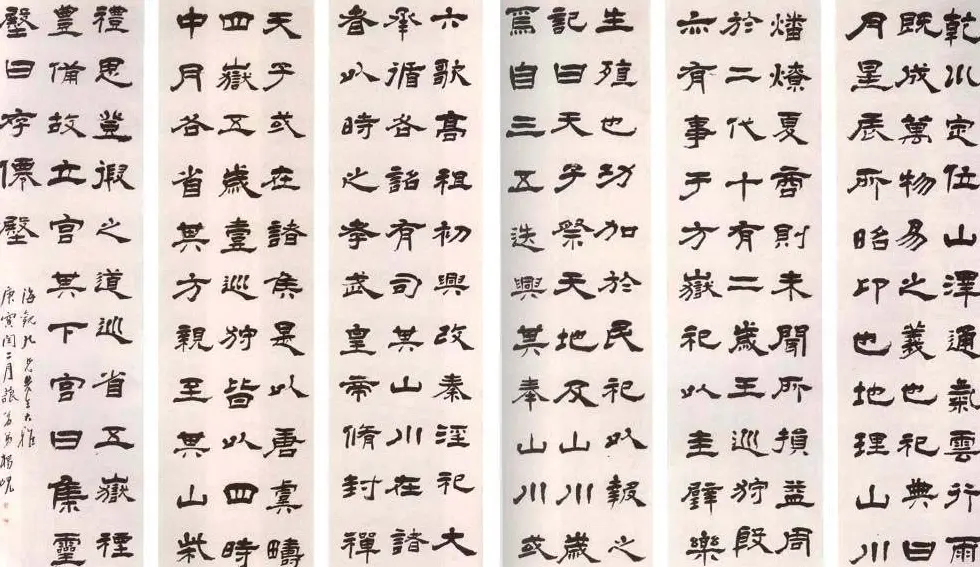 乾川定位山澤通氣雲行雨
既成萬物易之義也祀典曰
月星辰所昭卬也地理山川
燔燎夏商則未聞所損益周
於二代十有二歲王巡狩殷
亦有事于方嶽祀以圭璧樂
生殖也功加於民祀以報之
記曰天子祭天地及山川歲
焉自三五迭興其奉山川或
六歌高祖初興改秦淫祀大
承循各詔有司其山川在諸
者以時之孝武皇帝脩封禪
天子或在諸侯是以唐虞疇
四嶽五歲壹巡狩皆以四時
中月各省其方親至其山柴
禮思登徦之道巡省五嶽禋
豐備故立宮其下宮曰集靈
壂曰存僊壂
海觀九兄大雅
庚寅閏二月藐翁弟楊峴